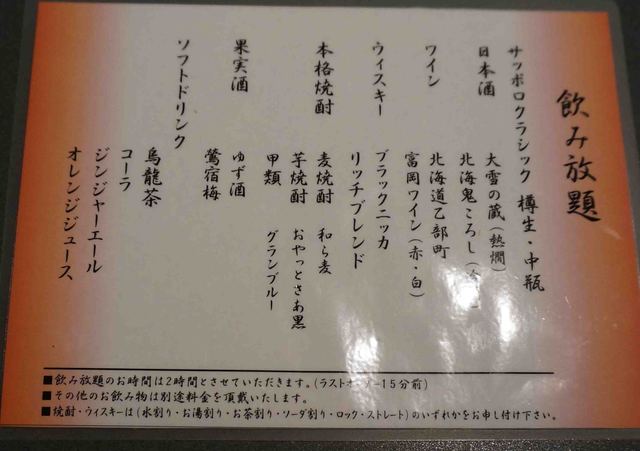 飲み放題
サッポロクラシック 樽生・中瓶
日本酒 大雪の蔵(熱燗)
北海鬼ころし
ワイン 北海道乙部町
富岡ワイン(赤・白)
ウィスキー ブラックニッカ
リッチブレンド
本格焼酎 麦焼酎 和ら麦
芋焼酎 おやっとさあ黒
甲類 グランブルー
果実酒 ゆず酒
鶯宿梅
ソフトドリンク
烏龍茶
コーラ
ジンジャーエール
オレンジジュース
■飲み放題のお時間は2時間とさせていただきます。(ラストオーダー15分前)
■その他のお飲み物は別途料金を頂戴いたします。
■焼酎・ウィスキーは(水割り・お湯割り・お茶割り・ソーダ割り・ロック・ストレート)のいずれかをお申し付け下さい。